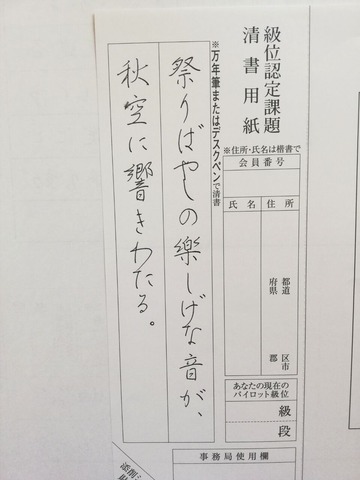 級位認定課題
清書用紙
※住所・氏名は楷書で
会員番号
氏名
住所
都道
府県
区市
郡
あなたの現在の
パイロット級位
級
段
事務局使用欄
※万年筆またはデスクペンで清書
祭りばやしの楽しげな音が、
秋空に響きわたる。